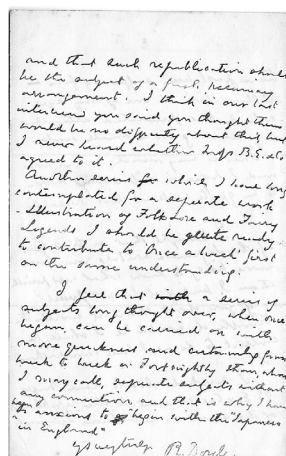 and that such republication should
be the subject of a fresh pecuniary
arrangement. I think in our last
interview you said you thought there
would be no difficulty about this, but
I never heard whether B.E. & Co
agreed to it.
Another series for which I have long
contemplated for a separate work
Illustration of Folk Lore and Fairy
Legends I should be quite ready
to contribute to Once a Week first
on the same understanding.
I feel that with a series of
subjects long thought over, when once
began, can be carried on with
more quickness and certainty from
week to week or Fortnightly than, what
I may call, separate subjects without
any connection, and that is why I have
been so anxious to begin with the "Japanese
in England"
R. Doyle